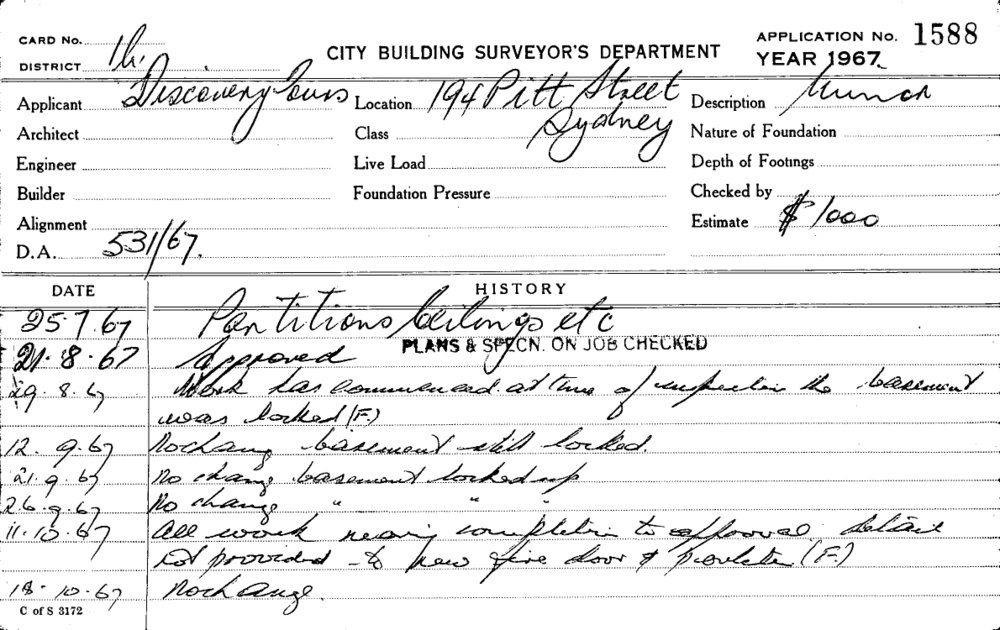 CARD No. 1h.
DISTRICT
CITY BUILDING SURVEYOR'S DEPARTMENT
APPLICATION No. 1588
YEAR 1967
Applicant Discovery Tours
Location 194 Pitt Street
Sydney
Description Minor
Architect
Class
Nature of Foundation
Engineer
Live Load
Depth of Footings
Builder
Foundation Pressure
Checked by
Alignment
Estimate $1000
D.A. 531/67.
DATE
HISTORY
25.7.67 Partitions Ceilings etc
PLANS & SPECN. ON JOB CHECKED
21.8.67 Approved
29.8.67 Work has commenced. at time of inspection the basement
was locked (F.)
12.9.67 No change basement still locked.
21.9.67 No change basement locked up
26.9.67 No change " " "
11.10.67 All work nearing completion to approval
not provided to new fire door & (F.)
18.10.67 No change.
C of S 3172